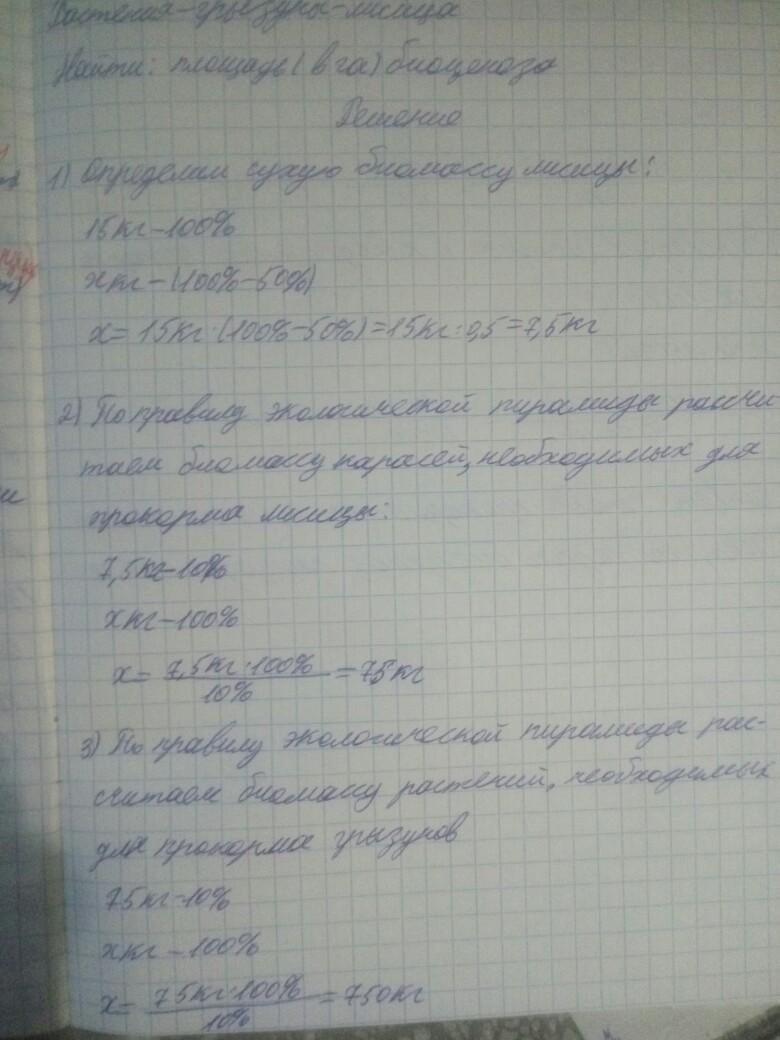 Растения-грызуны-лисица
Найти: площадь (в га) биоценоза
Решение
1) Определим сухую биомассу лисицы:
15кг-100%
xкг-(100%-50%)
x= 15кг·(100%-50%)=15кг·0,5=7,5кг
2) По правилу экологической пирамиды рассчи-
таем биомассу карасей, необходимых для
прокорма лисицы:
7,5кг-10%
xкг-100%
x= 7,5кг·100% = 75кг
10%
3) По правилу экологической пирамиды рас-
считаем биомассу растений, необходимых
для прокорма грызунов
75кг-10%
xкг-100%
x= 75кг·100% = 750кг
10%